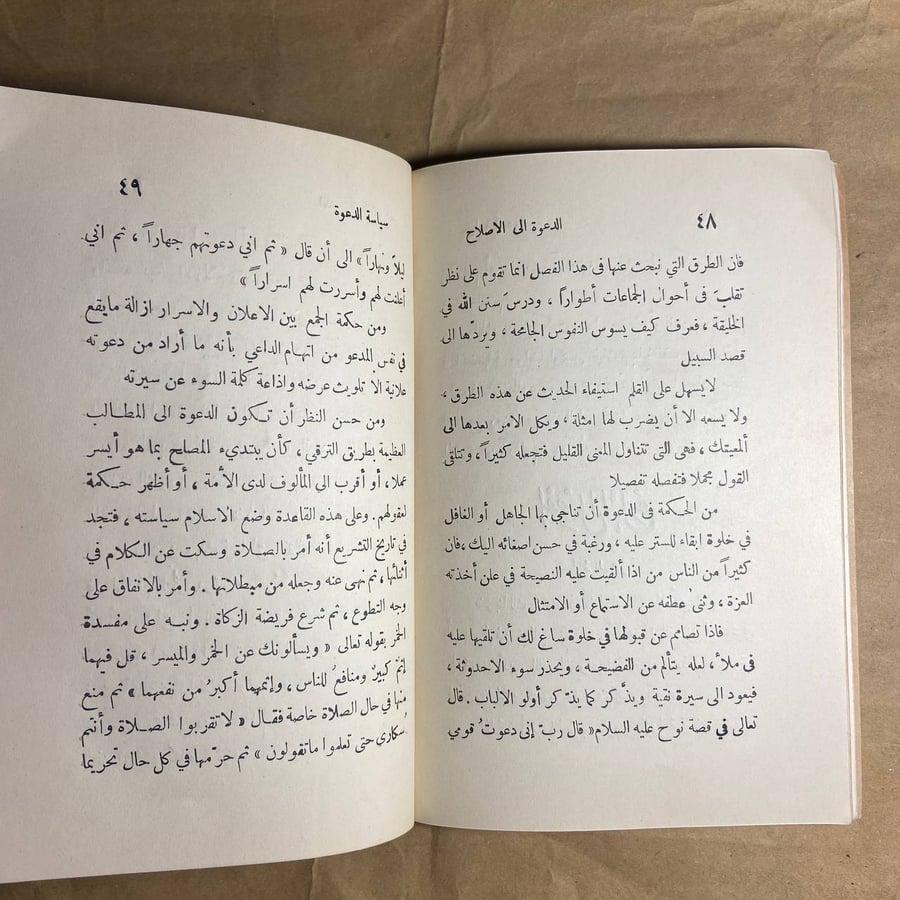 ٤٨
الدعوة الى الاصلاح
فان الطرق التي نبحث عنها فى هذا الفصل انما تقوم على نظر
تقلبَ فى أحوال الجماعات أطواراً ، ودرسَ سنن الله في
الخليقة ، فعرف كيف يسوس النفوس الجامحة ، ويردّها الى
قصد السبيل
لايسهل على القلم استيفاء الحديث عن هذه الطرق ،
ولا يسعه الا أن يضرب لها امثلة ، ويكل الامر بعدها الى
ألمعيتك ، فهى التي تتناول المعنى القليل فتجعله كثيراً ، وتتلقى
القول مجملا فتفصله تفصيلا
من الحكمة فى الدعوة أن تناجي بها الجاهل أو الغافل
في خلوة ابقاء للستر عليه ، ورغبة في حسن اصغائه اليك ، فان
كثيراً من الناس من اذا ألقيت عليه النصيحة في علن أخذته
العزة ، وثنىُ عطفه عن الاستماع أو الامتثال
فاذا تصامم عن قبولها في خلوة ساغ لك أن تلقيها عليه
فى ملأ ، لعله يتألم من الفضيحة ، ويحذر سوء الاحدوثة ،
فيعود الى سيرة نقية ويذَّكر كما يذّكر أولو الالباب . قال
تعالى في قصة نوح عليه السلام « قال ربّ إنى دعوتُ قومي
٤٩
سياسة الدعوة
ليلاً ونهاراً » الى أن قال « ثم اني دعوتهم جهاراً ، ثم اني
أعلنت لهم وأسررت لهم اسراراً »
ومن حكمة الجمع بين الاعلان والاسرار ازالة مايقع
في نفس المدعو من اتهام الداعي بأنه ما أراد من دعوته
علانية الا تلويث عرضه واذاعة كلمة السوء عن سيرته
ومن حسن النظر أن تكون الدعوة الى المطالب
العظيمة بطريق الترقي ، كأن يبتديء المصلح بما هو أيسر
عملا ، أو أقرب الي المألوف لدى الأمة ، أو أظهر حكمة
لعقولهم . وعلى هذه القاعدة وضع الاسلام سياسته ، فتجد
فى تاريخ التشريع أنه أمر بالصلاة وسكت عن الكلام في
أثنائها ، ثم نهى عنه وجعله من مبطلاتها . وأمر بالانفاق على
وجه التطوع ، ثم شرع فريضة الزكاة . ونبه على مفسدة
الخمر بقوله تعالى « ويسألونك عن الخمر والميسر ، قل فيهما
إثم كبيرٌ ومنافعُ للناس ، وإثمهما أكبرُ من نفعهما » ثم منع
منها في حال الصلاة خاصة فقال « لا تقربوا الصلاة وأنتم
سُكارى حتى تعلموا ما تقولون » ثم حرّمها في كل حال تحريما